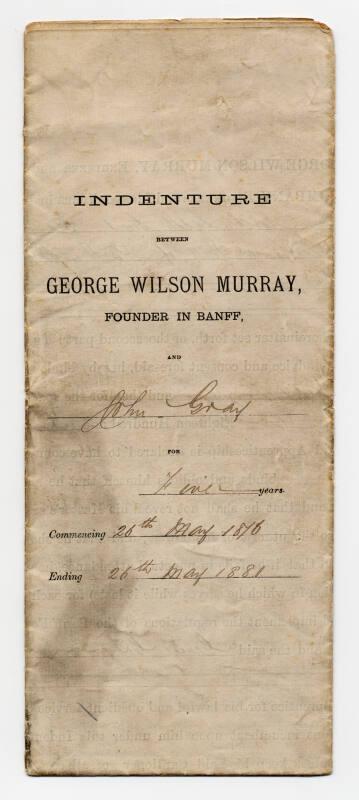 INDENTURE
BETWEEN
GEORGE WILSON MURRAY,
FOUNDER IN BANFF,
AND
John Gray
FOR
Five years.
Commencing 26th May 1876
Ending 26th May 1881